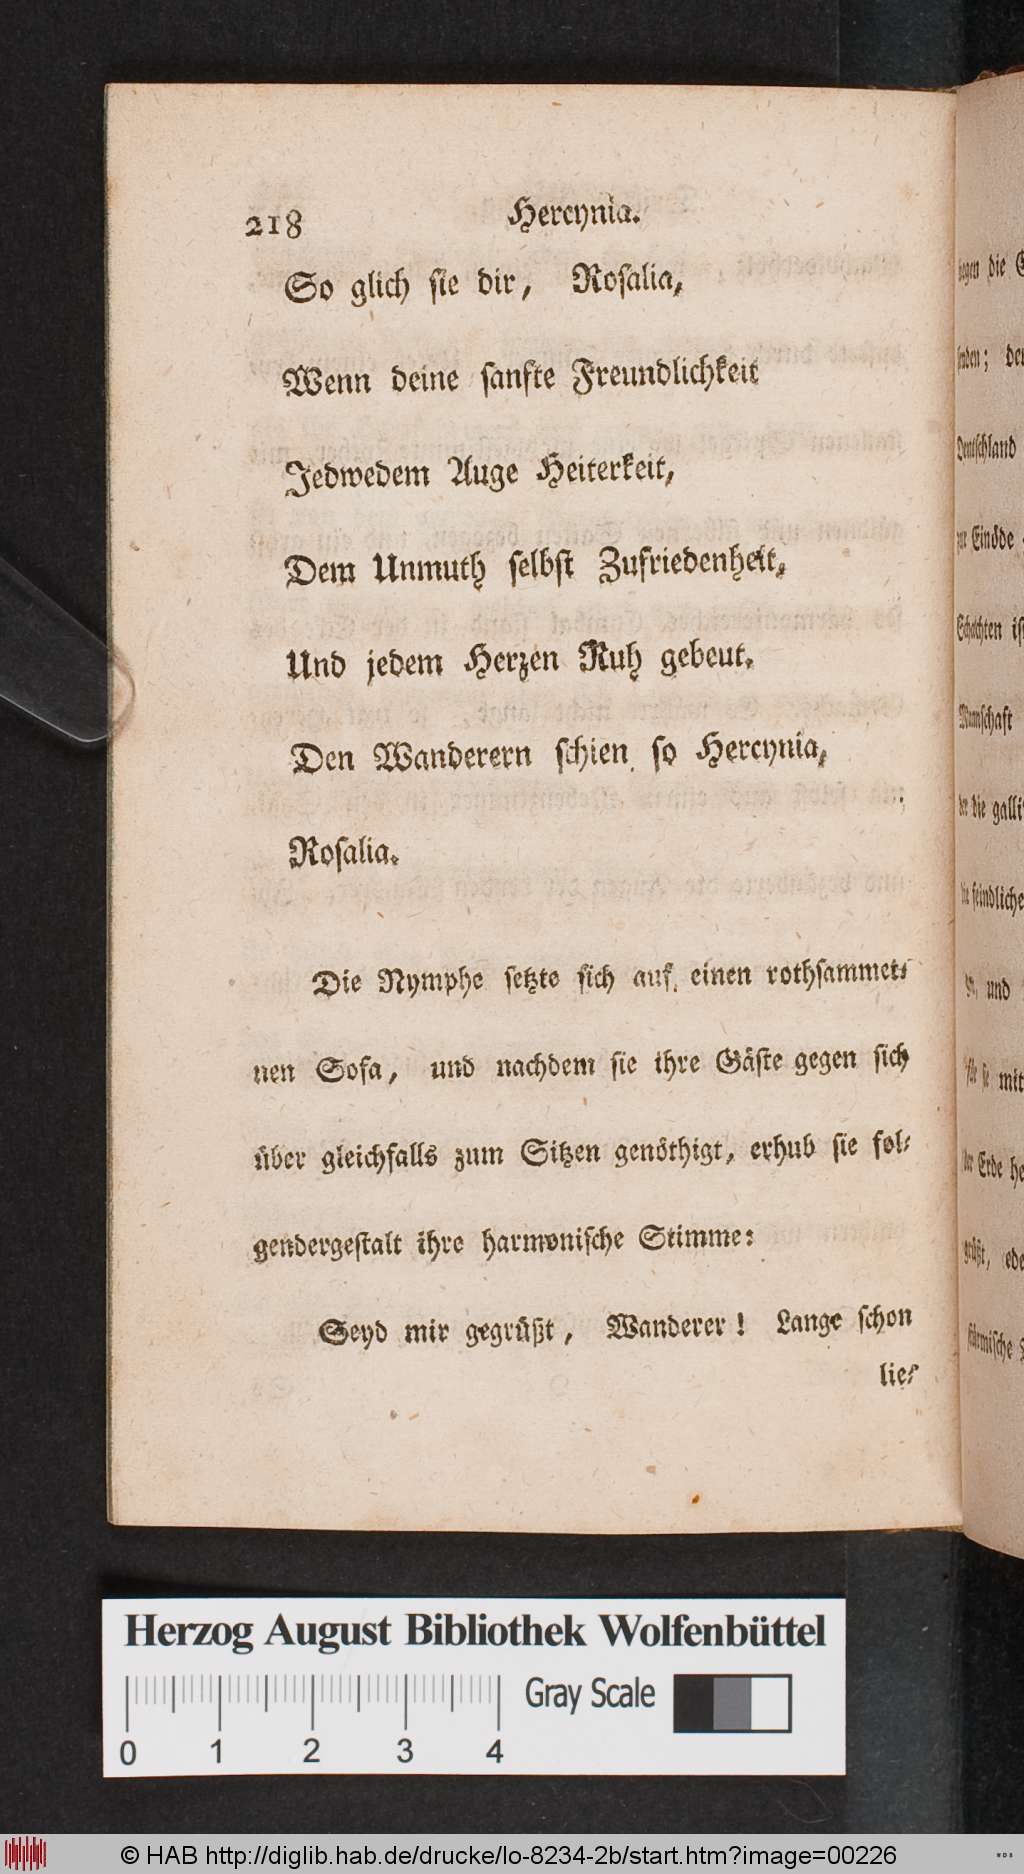 218
Hercynia.
So glich sie dir, Rosalia,
Wenn deine sanfte Freundlichkeit
Jedwedem Auge Heiterkeit,
Dem Unmuth selbst Zufriedenheit,
Und jedem Herzen Ruh gebeut.
Den Wanderern schien so Hercynia,
Rosalia.
Die Nymphe setzte sich auf einen rothsammet-
nen Sofa, und nachdem sie ihre Gäste gegen sich
über gleichfalls zum Sitzen genöthigt, erhub sie fol-
gendergestalt ihre harmonische Stimme:
Seyd mir gegrüßt, Wanderer! Lange schon
lie-
die
Deutschland
Einöde
die
und
mit
Erde
Herzog August Bibliothek Wolfenbüttel
0 1 2 3 4
Gray Scale
© HAB http://diglib.hab.de/drucke/lo-8234-2b/start.htm?image=00226